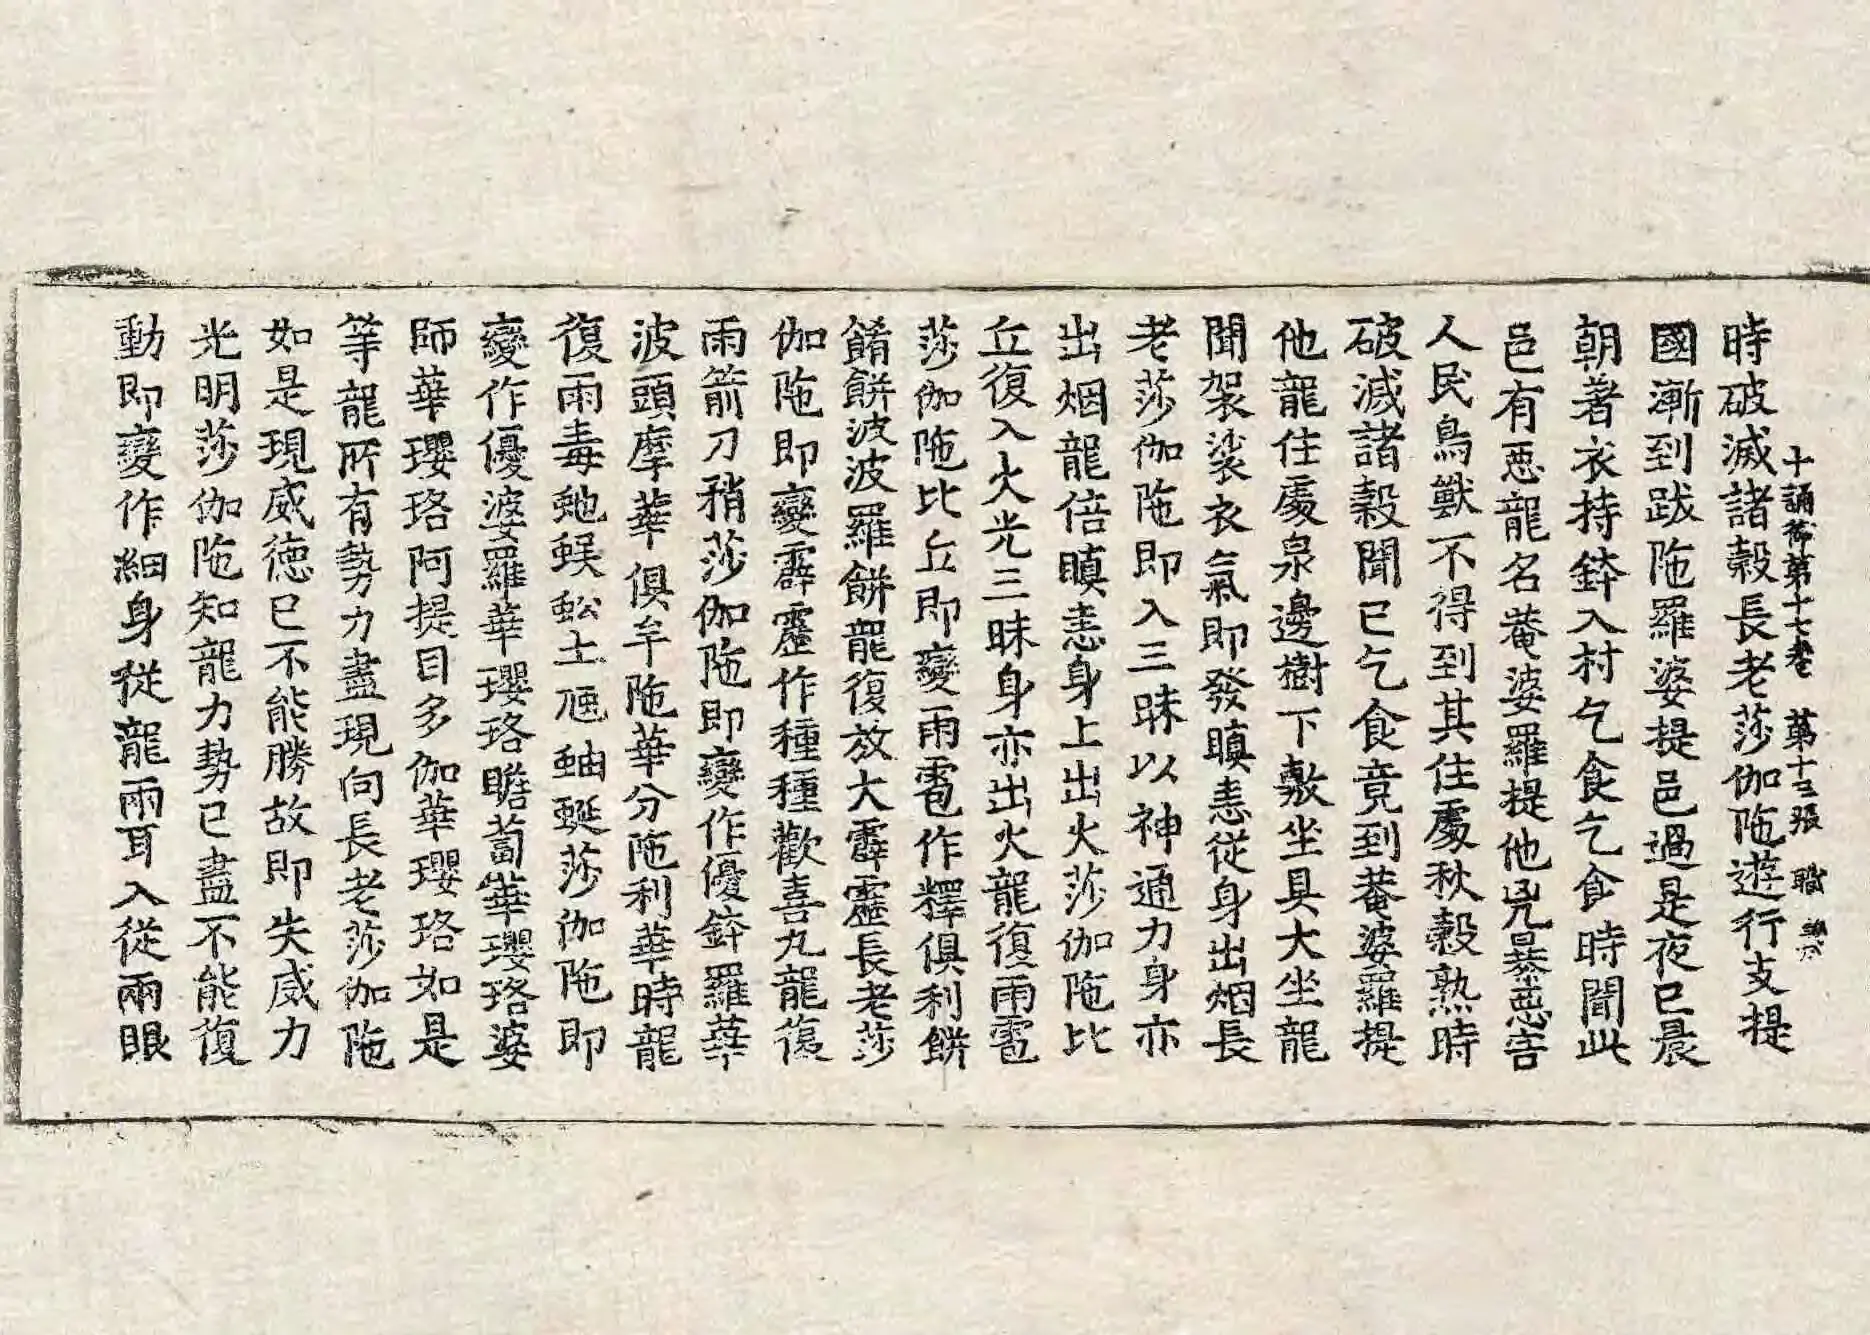 十誦律第十七卷 第十三張 職
時破滅諸穀長老莎伽陁遊行支提
國漸到跋陁羅婆提邑過是夜已晨
朝著衣持鉢入村乞食乞食時聞此
邑有惡龍名菴婆羅提他兇暴惡害
人民鳥獸不得到其住處秋穀熟時
破滅諸穀聞已乞食竟到菴婆羅提
他龍住處泉邊樹下敷坐具大坐龍
聞袈裟衣氣即發瞋恚從身出烟長
老莎伽陁即入三昧以神通力身亦
出烟龍倍瞋恚身上出火莎伽陁比
丘復入火光三昧身亦出火龍復雨雹
莎伽陁比丘即變雨雹作釋俱利餅
餚餅波波羅餅龍復放大霹靂長老莎
伽陁即變霹靂作種種歡喜丸龍復
雨箭刀矟莎伽陁即變作優鉢羅華
波頭摩華俱牟陁華分陁利華時龍
復雨毒虵蜈蚣土虺蚰蜒莎伽陁即
變作優婆羅華瓔珞瞻蔔華瓔珞婆
師華瓔珞阿提目多伽華瓔珞如是
等龍所有勢力盡現向長老莎伽陁
如是現威德已不能勝故即失威力
光明莎伽陁知龍力勢已盡不能復
動即變作細身從龍兩耳入從兩眼